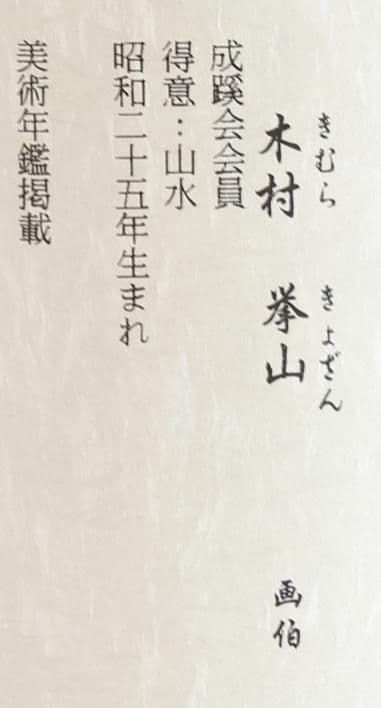 きむら きよざん
木村 挙山 画伯
成蹊会会員
得意：山水
昭和二十五年生まれ
美術年鑑掲載